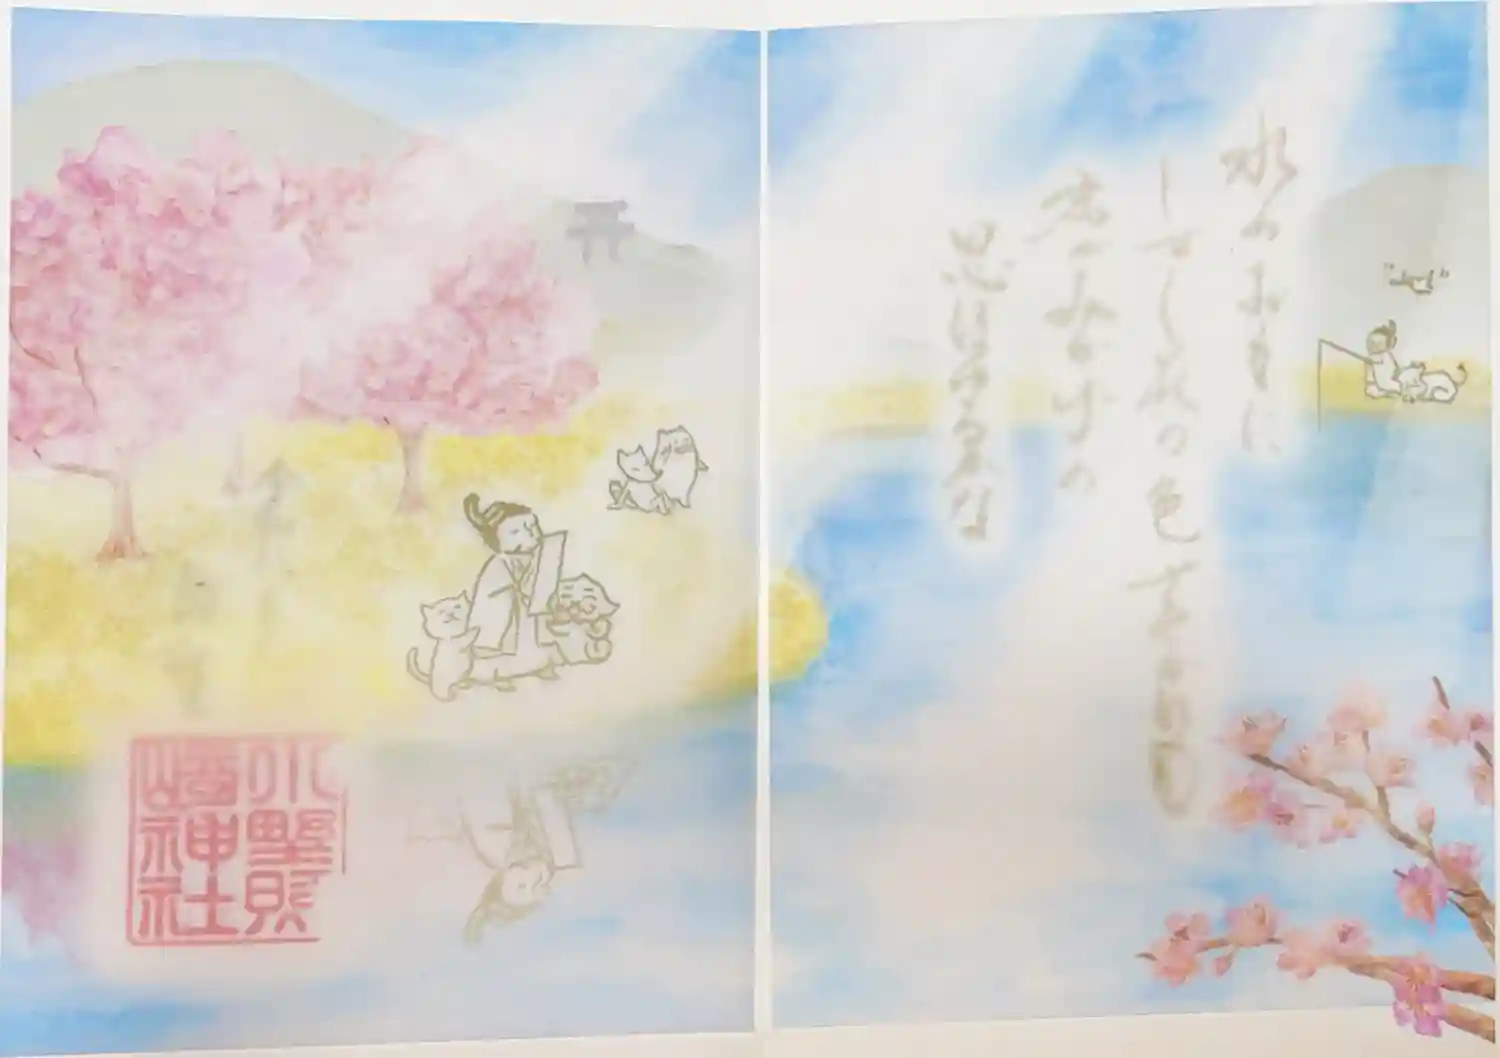 水のおもに
しづく花の色 さやかにも
君がみかげの
思ほゆるかな
小野照
崎神社